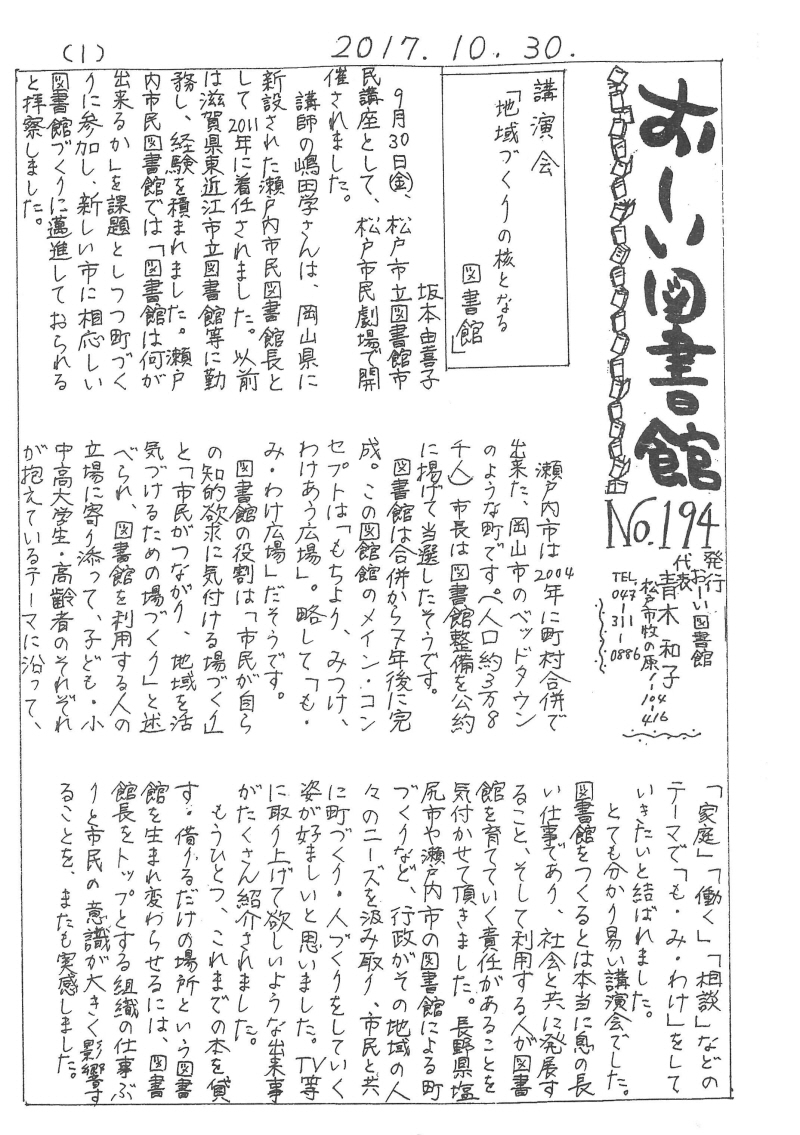 (1)
2017.10.30.
おーい図書館
No.194
発行
おーい図書館
代表
青木 和子
松戸市牧の原1-104-416
TEL 047-311-0886
講演会
「地域づくりの核となる
図書館」
坂本由喜子
9月30日㊎、松戸市立図書館市
民講座として、松戸市民劇場で開
催されました。
講師の嶋田学さんは、岡山県に
新設された瀬戸内市民図書館長と
して2011年に着任されました。以前
は滋賀県東近江市立図書館等に勤
務し、経験を積まれました。瀬戸
内市民図書館では「図書館は何が
出来るか」を課題としつつ町づく
りに参加し、新しい市に相応しい
図書館づくりに邁進しておられる
と拝察しました。
瀬戸内市は2004年に町村合併で
出来た、岡山市のベッドタウン
のような町です。(人口約3万8
千人)市長は図書館整備を公約
に掲げて当選したそうです。
図書館は合併から7年後に完
成。この図書館のメイン・コン
セプトは「もちより、みつけ、
わけあう広場」。略して「も・
み・わけ広場」だそうです。
図書館の役割は「市民が自ら
の知的欲求に気付ける場づくり」
と「市民がつながり、地域を活
気づけるための場づくり」と述
べられ、図書館を利用する人の
立場に寄り添って、子ども・小
中高大学生・高齢者のそれぞれ
が抱えているテーマに沿って、
「家庭」「働く」「相談」などの
テーマで「も・み・わけ」をして
いきたいと結ばれました。
とても分かり易い講演会でした。
図書館をつくるとは本当に息の長
い仕事であり、社会と共に発展す
ること、そして利用する人が図書
館を育てていく責任があることを
気付かせて頂きました。長野県塩
尻市や瀬戸内市の図書館による町
づくりなど、行政がその地域の人
々のニーズを汲み取り、市民と共
に町づくり・人づくりをしていく
姿が好ましいと思いました。TV等
に取り上げて欲しいような出来事
がたくさん紹介されました。
もうひとつ、これまでの本を貸
す・借りるだけの場所という図書
館を生まれ変わらせるには、図書
館長をトップとする組織の仕事ぶ
りと市民の意識が大きく影響す
ることを、またも実感しました。